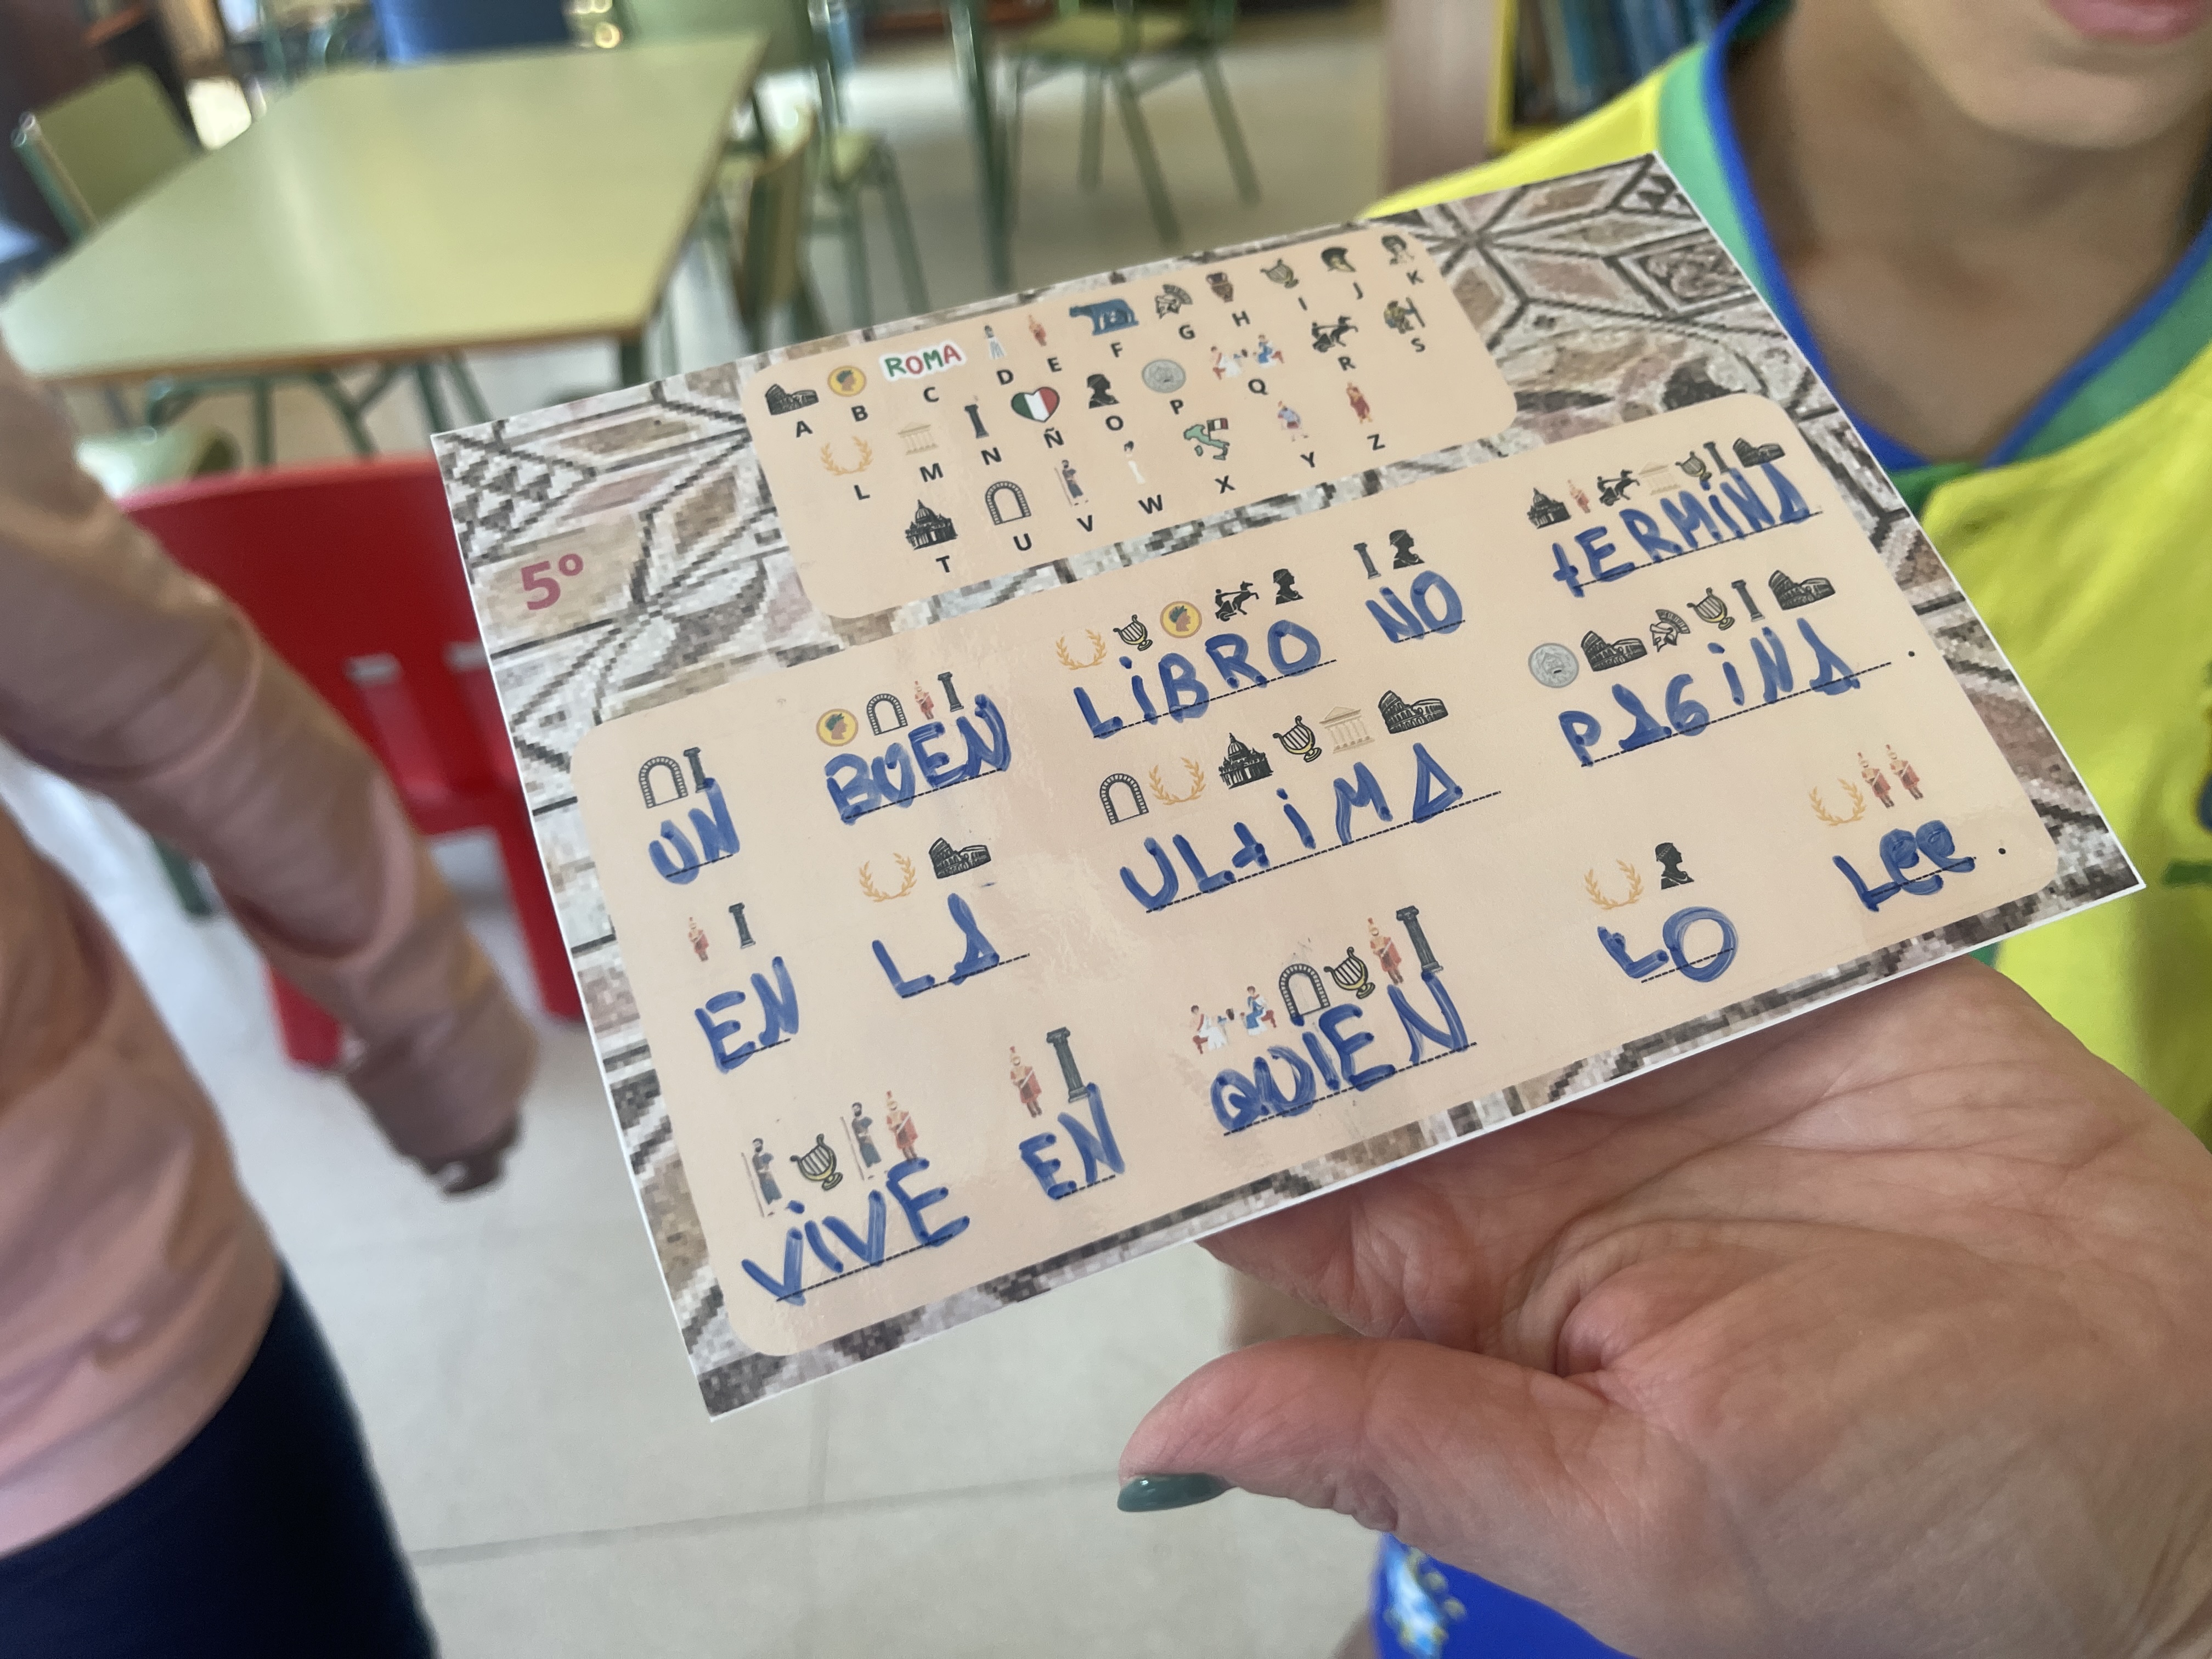 ROMA
A B C D E F G H I J K
L M N Ñ O P Q R S
T U V W X Y Z
5º
UN BUEN LiBRO NO tERMiNA
EN LA ULtiMA PAGiNA.
ViVE EN QUiEN LO Lee.